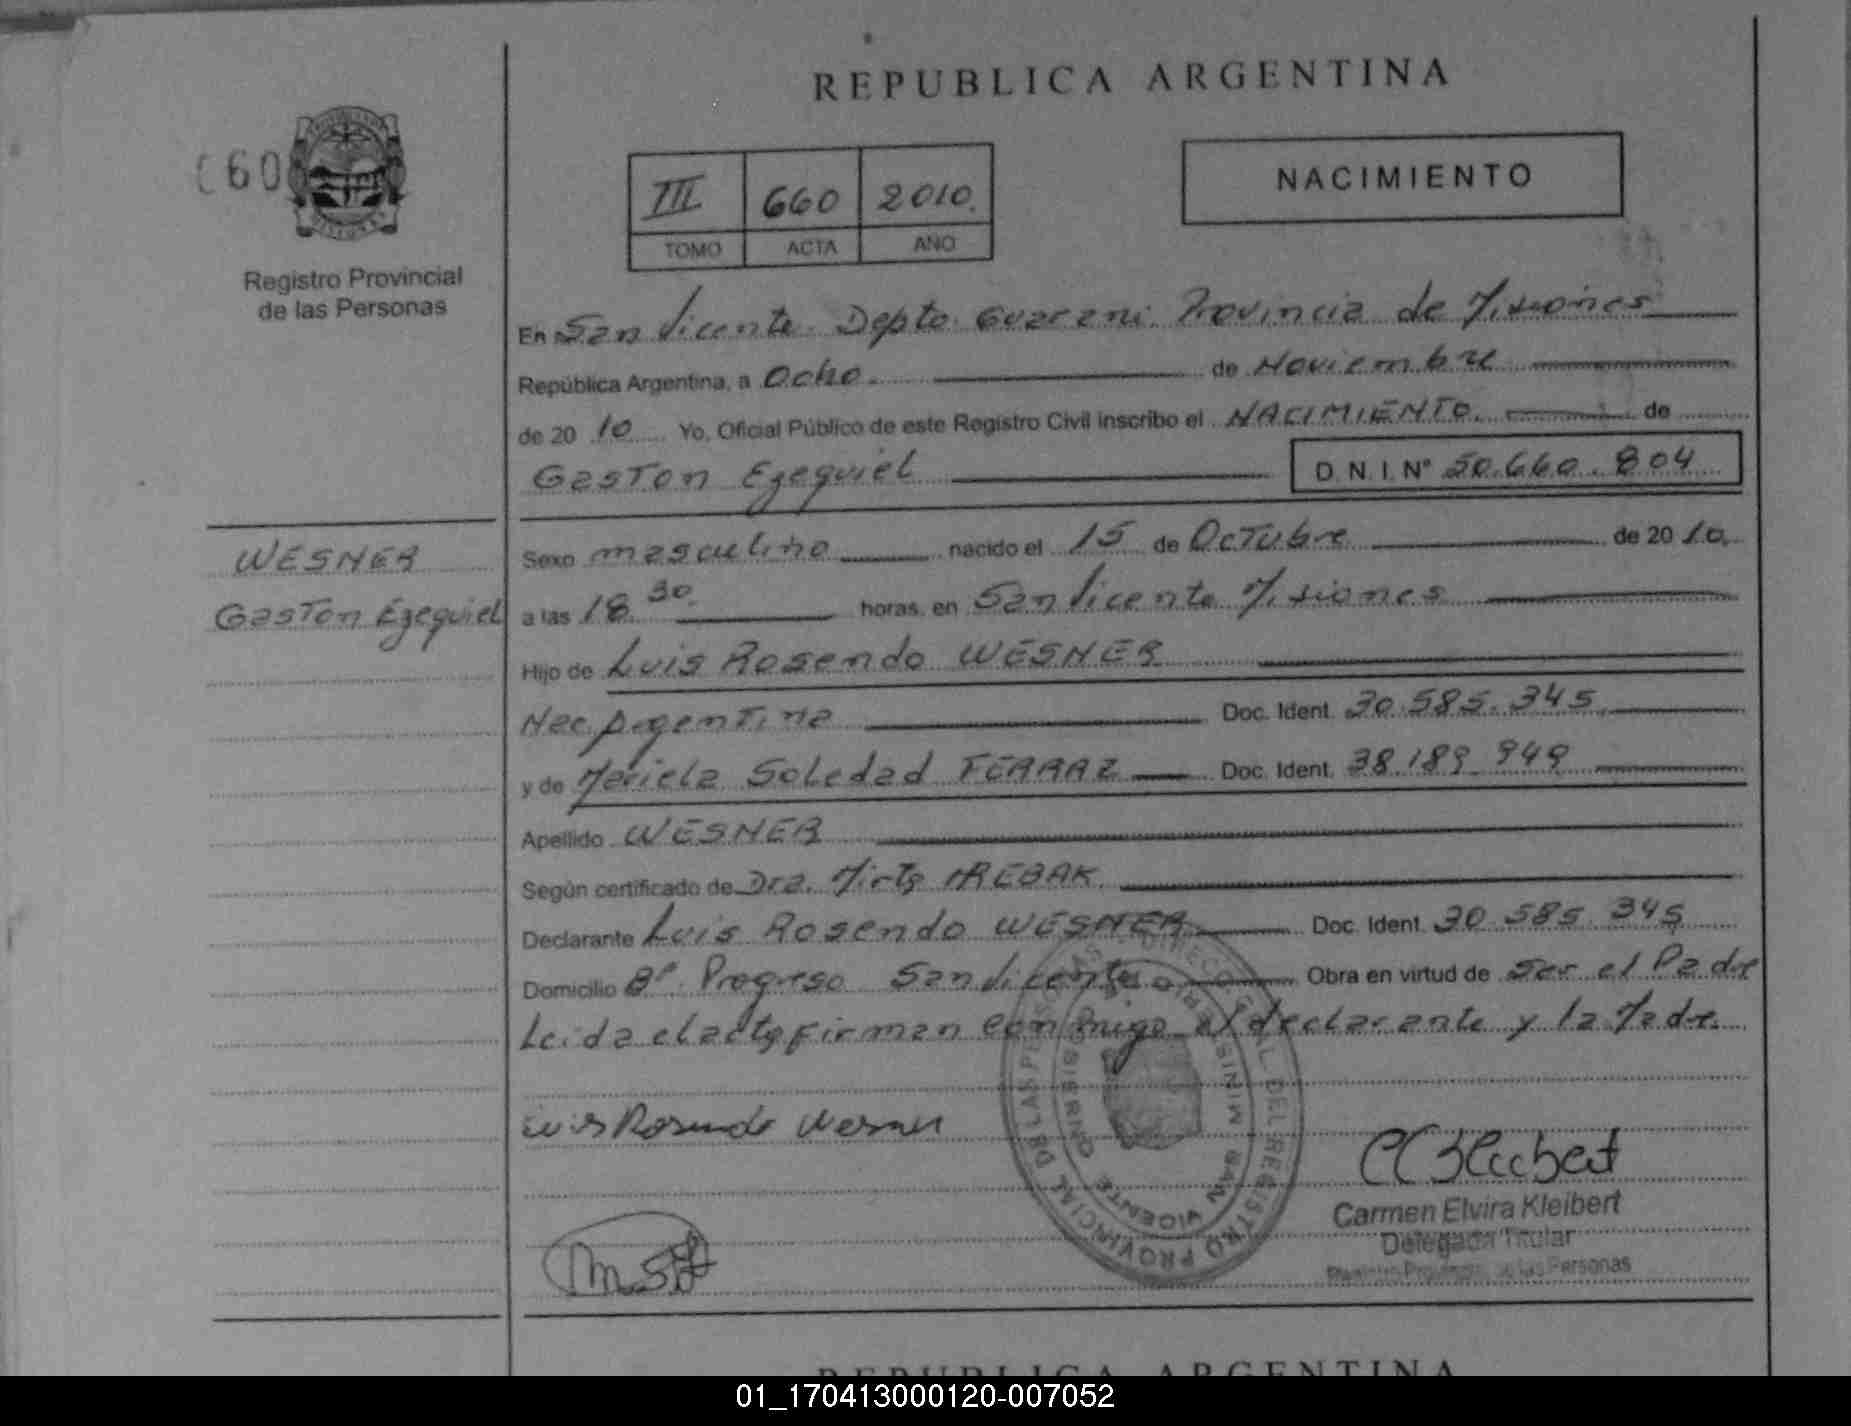 REPUBLICA ARGENTINA
660
Registro Provincial
de las Personas
III 660 2010
TOMO ACTA AÑO
NACIMIENTO
En San Vicente Depto Guarani Provincia de Misiones
República Argentina, a Ocho de Noviembre
de 20 10 Yo, Oficial Público de este Registro Civil inscribo el NACIMIENTO de
Gaston Ezequiel D.N.I. Nº 50.660.804
WESNER
Gaston Ezequiel
Sexo masculino nacido el 15 de Octubre de 20 10
a las 18 30 horas, en San Vicente Misiones
Hijo de Luis Rosendo WESNER
Nac. Argentina Doc. Ident. 30.585.345
y de Mariela Soledad FERRAZ Doc. Ident. 38.189.949
Apellido WESNER
Según certificado de Dra. Mirta
Declarante Luis Rosendo WESNER Doc. Ident. 30.585.345
Domicilio Bº Progreso San Vicente Obra en virtud de Ser el Padre
Leida el acta firman conmigo el declarante y la Madre
Luis Rosendo Wesner
Carmen Elvira Kleibert
Delegada Titular
Registro Provincial de las Personas
DEL REGISTRO PROVINCIAL DE LAS PERSONAS
SAN VICENTE
REPUBLICA ARGENTINA
01_170413000120-007052